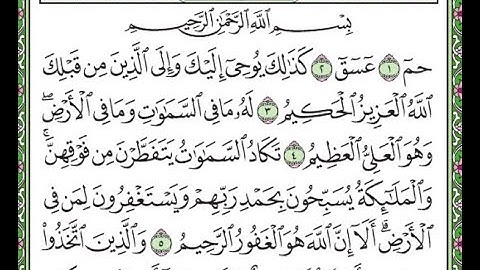 بِسْمِ ٱللَّهِ ٱلرَّحْمَٰنِ ٱلرَّحِيمِ
حمٓ ١ عٓسٓقٓ ٢ كَذَٰلِكَ يُوحِىٓ إِلَيْكَ وَإِلَى ٱلَّذِينَ مِن قَبْلِكَ
ٱللَّهُ ٱلْعَزِيزُ ٱلْحَكِيمُ ٣ لَهُۥ مَا فِى ٱلسَّمَٰوَٰتِ وَمَا فِى ٱلْأَرْضِۖ
وَهُوَ ٱلْعَلِىُّ ٱلْعَظِيمُ ٤ تَكَادُ ٱلسَّمَٰوَٰتُ يَتَفَطَّرْنَ مِن فَوْقِهِنَّۚ
وَٱلْمَلَٰٓئِكَةُ يُسَبِّحُونَ بِحَمْدِ رَبِّهِمْ وَيَسْتَغْفِرُونَ لِمَن فِى
ٱلْأَرْضِۗ أَلَآ إِنَّ ٱللَّهَ هُوَ ٱلْغَفُورُ ٱلرَّحِيمُ ٥ وَٱلَّذِينَ ٱتَّخَذُوا۟